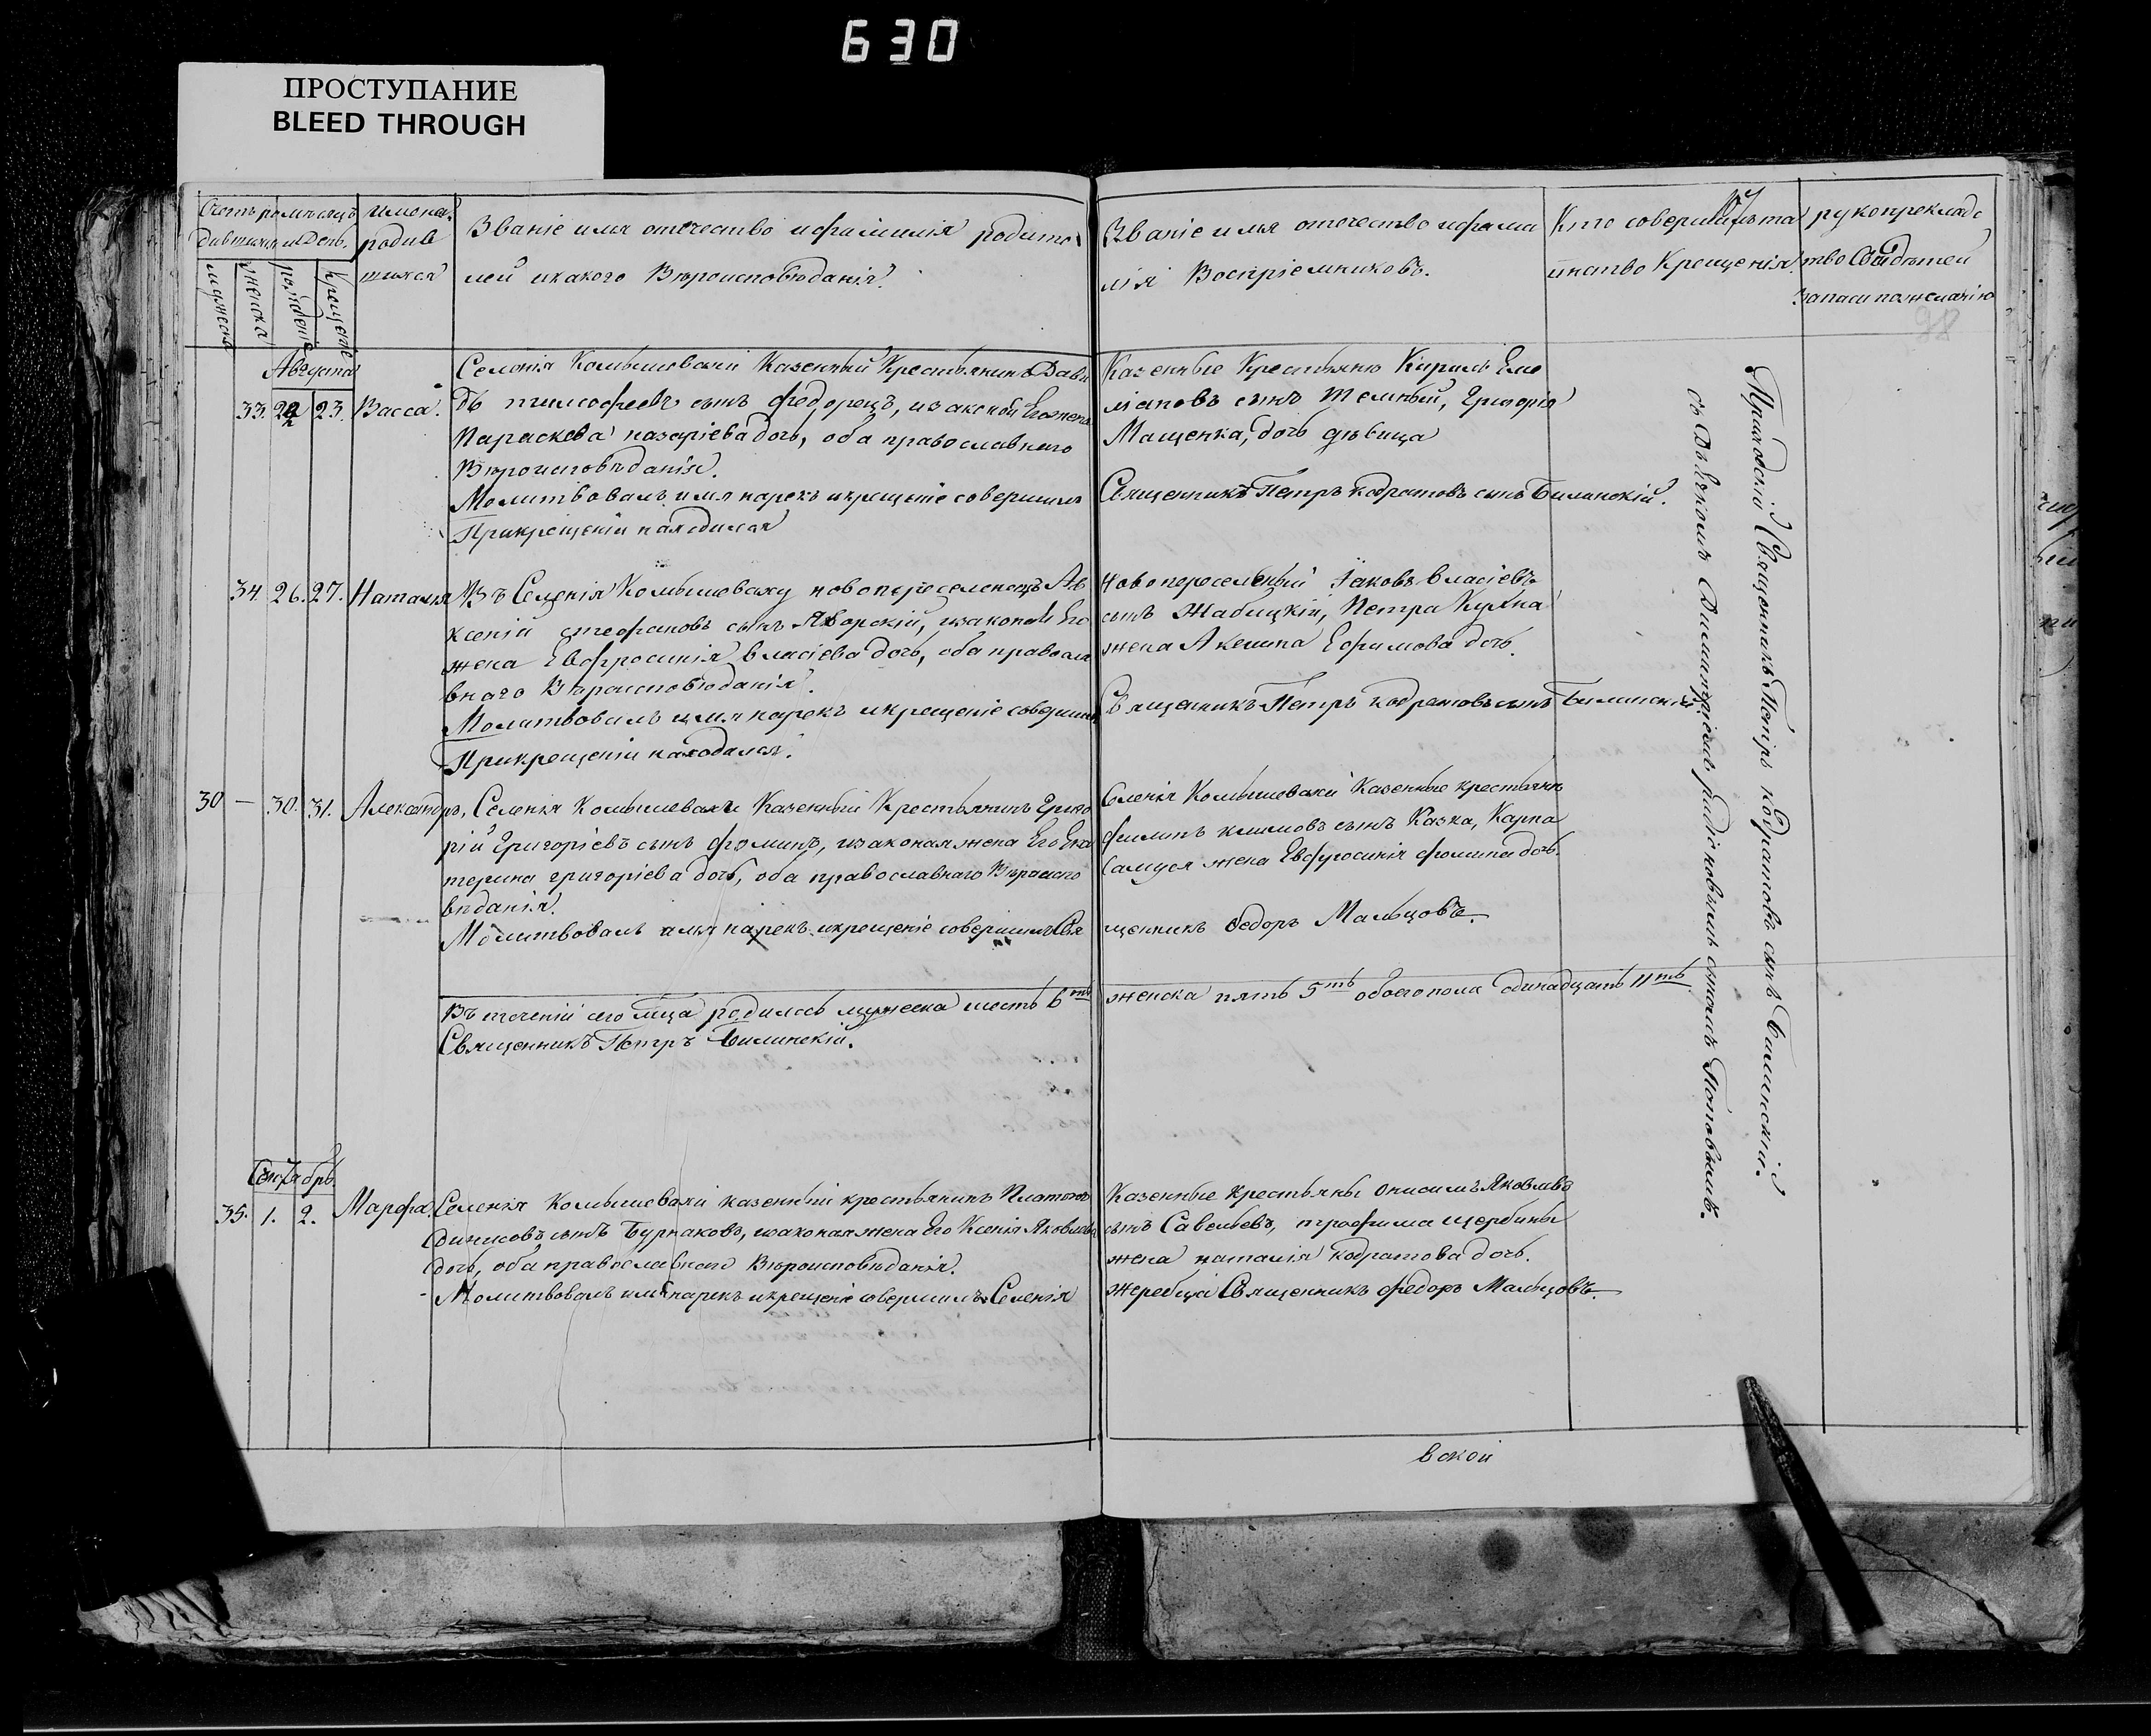 630
ПРОСТУПАНИЕ
BLEED THROUGH
Званіе имя отечество и фамилія родите
лей и какого Вѣроисповѣданія.
имена
родив
шихся
мужеска
женска
рожденіе
крещеніе
Званіе имя отечество и фами
лія Воспріемниковъ.
Кто совершилъ та
инство Крещенія
рукоприкладс
тво Свидѣтелей
записи по желанію
98
Августа
33. 22 23. Васса.
Селенія Комышевахи Казенный Крестьянинъ Дави
дъ тимофеевъ сынъ федорецъ, и законная Его жена
Параскева назаріева дочь, оба православнаго
Вѣроисповѣданія.
Молитвовалъ имя нарекъ и крещеніе совершилъ
При крещеніи находился
Казенные Крестьяне Кирилъ Еме
ліановъ сынъ Темный, Григорія
Мащенка, дочь дѣвица
Священникъ Петръ кодратовъ сынъ Билинскій.
34. 26. 27. Наталія
Въ Селенія Комышеваху новопереселенецъ Ав
ксеній стефановъ сынъ Яворскій, и законая Его
жена Евфросинія власіева дочь, оба правосла
внаго Вѣроисповѣданія.
Молитвовалъ имя нарекъ и крещеніе совершилъ
При крещеніи находился.
Новопереселеный Іаковъ власіевъ
сынъ Жабицкій, Петра Кухна
жена Акелина Ефимова дочь.
Священникъ Петръ кодратовъ сынъ Билинскій.
30 — 30. 31. Александръ,
Селенія Комышевахи Казенный Крестьянинъ Григо
рій Григоріевъ сынъ фоминъ, и законая жена Его Ека
терина григоріева дочь, оба православнаго Вѣроиспо
вѣданія.
Молитвовалъ имя нарекъ и крещеніе совершилъ Свя
Селенія Комышевахи Казенные крестьяне
филипъ климовъ сынъ Казка, Карпа
Самуся жена Евфросинія фомина дочь.
щенникъ Ѳедоръ Мальцовъ.
Въ теченіи сего м̃ца родилось мужеска шесть 6ть
Священникъ Петръ Билинскій.
женска пять 5ть обоего пола одинадцать 11ть
Сентябрь.
35. 1. 2. Марфа.
Селенія Комышевахи казенный крестьянинъ Платонъ
Динисовъ сынъ Бурлаковъ, и законая жена Его Ксенія Яковлева
дочь, оба православнаго Вѣроисповѣданія.
Молитвовалъ имя нарекъ и крещеніе совершилъ Селенія
Казенные крестьяны Онисимъ Яковлевъ
сынъ Савельевъ, трофима щербины
жена наталія кодратова дочь.
Жеребца Священникъ федоръ Мальцовъ.
Приходскій Священникъ Петръ кодратовъ сынъ Билинскій.
съ Дьячкомъ
Поповымъ.
вской